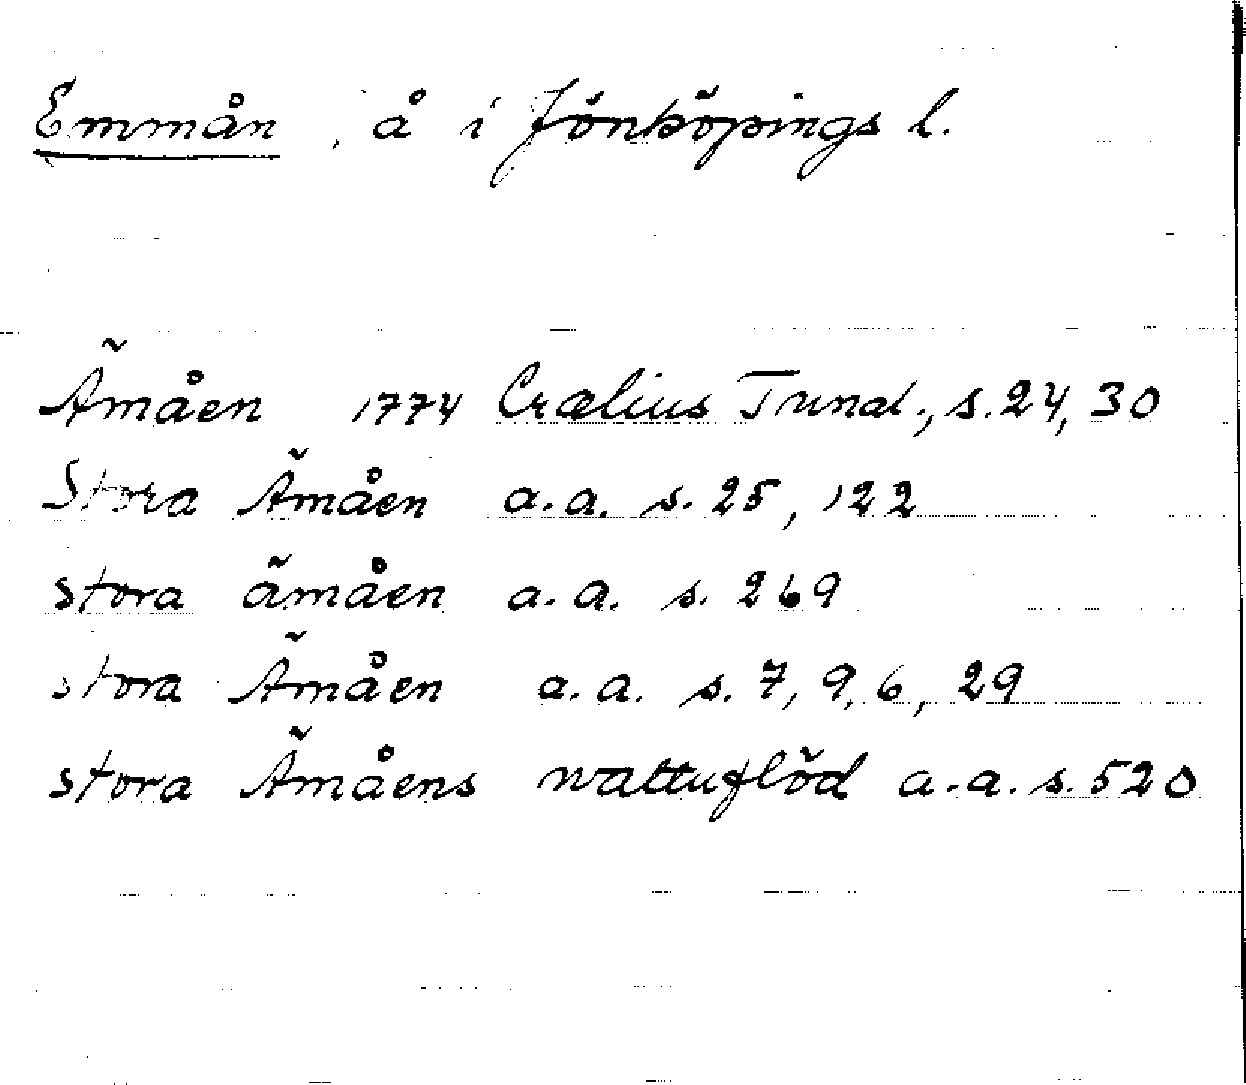 Emmån, å i Jönköpings l.
Ämåen 1774 Crælius Tunal., s. 24, 30
Stora Ämåen a.a. s. 25, 122
stora ämåen a.a. s. 269
stora Ämåen a.a. s. 7, 9, 6, 29
stora Ämåens wattuflöd a.a. s. 520